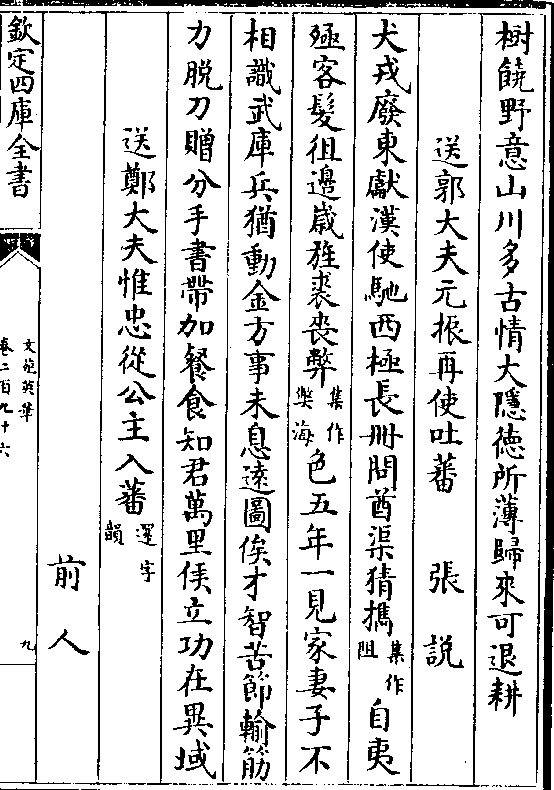 樹饒野意山川多古情大隱德所薄歸來可退耕
送郭大夫元振再使吐蕃 張說
犬戎廢東獻漢使馳西極長冊問酋渠猜㩦集作阻自夷
殛客髮徂邊嵗旌裘喪弊集作獘海色五年一見家妻子不
相識武庫兵猶動金方事未息逺圖俟才智苦節輸筋
力脫刀贈分手書帶加餐食知君萬里侯立功在異域
送鄭大夫惟忠從公主入蕃選字韻
前人
欽定四庫全書
文苑英華
卷二百九十六
九